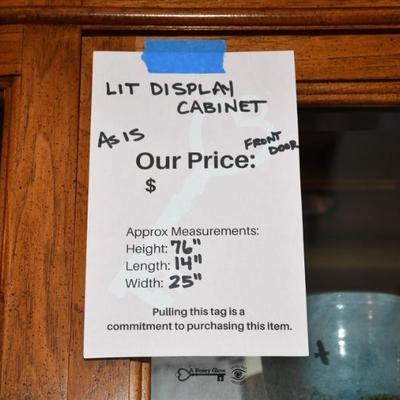 LIT DISPLAY
CABINET
AS IS
FRONT
DOOR
Our Price:
$
Approx Measurements:
Height: 76"
Length: 14"
Width: 25"
Pulling this tag is a
commitment to purchasing this item.